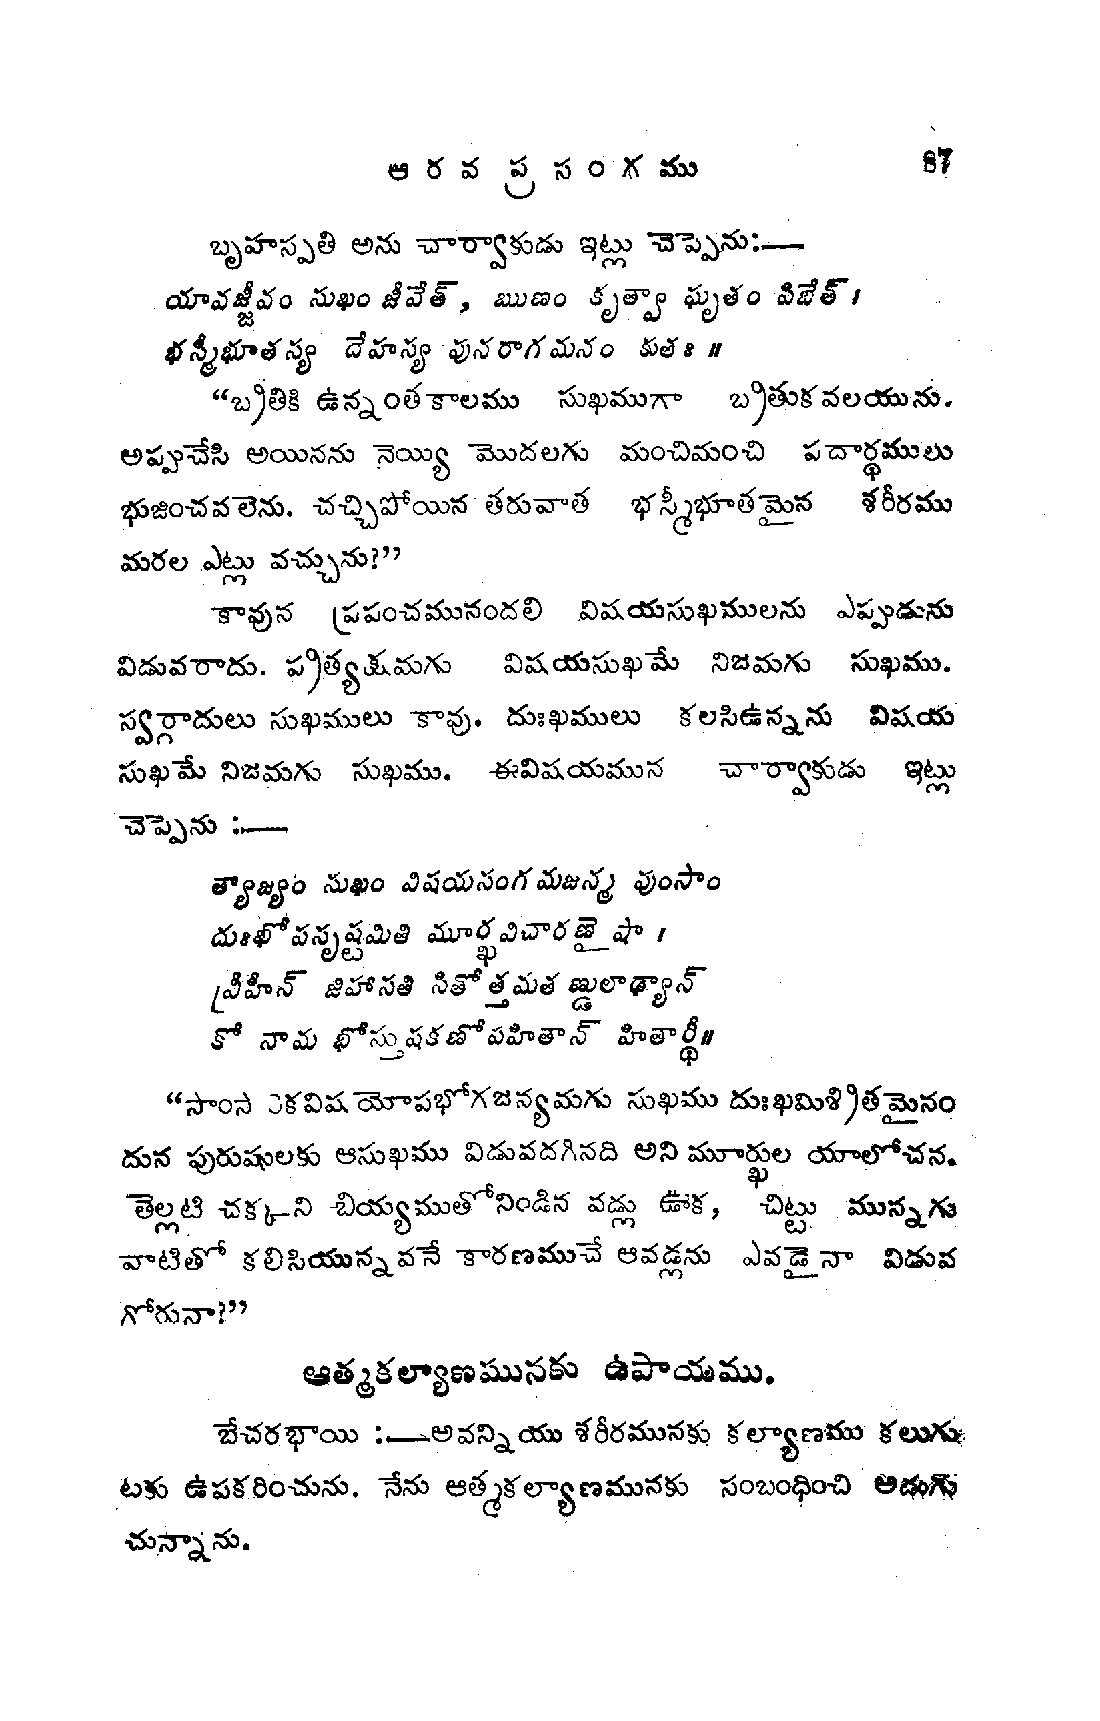 ఆ ర వ ప్ర సం గ ము 87
బృహస్పతి అను చార్వాకుడు ఇట్లు చెప్పెను:—
యావజ్జీవం సుఖం జీవేత్, ఋణం కృత్వా ఘృతం పిబేత్।
భస్మీభూతస్య దేహస్య పునరాగమనం కుతః॥
“బ్రతికి ఉన్నంతకాలము సుఖముగా బ్రతుకవలయును.
అప్పుచేసి అయినను నెయ్యి మొదలగు మంచిమంచి పదార్థములు
భుజించవలెను. చచ్చిపోయిన తరువాత భస్మీభూతమైన శరీరము
మరల ఎట్లు వచ్చును?”
కావున ప్రపంచమునందలి విషయసుఖములను ఎప్పుడును
విడువరాదు. ప్రత్యక్షమగు విషయసుఖమే నిజమగు సుఖము.
స్వర్గాదులు సుఖములు కావు. దుఃఖములు కలసిఉన్నను విషయ
సుఖమే నిజమగు సుఖము. ఈవిషయమున చార్వాకుడు ఇట్లు
చెప్పెను :—
త్యాజ్యం సుఖం విషయసంగమజన్మ పుంసాం
దుఃఖోపసృష్టమితి మూర్ఖవిచారణైషా।
వ్రీహీన్ జిహాసతి సితోత్తమతణ్డులాఢ్యాన్
కో నామ భోస్తుషకణోపహితాన్ హితార్థీ॥
“సాంసారికవిషయోపభోగజన్యమగు సుఖము దుఃఖమిశ్రితమైనం
దున పురుషులకు ఆసుఖము విడువదగినది అని మూర్ఖుల యాలోచన.
తెల్లటి చక్కని బియ్యముతోనిండిన వడ్లు ఊక, చిట్టు మున్నగు
వాటితో కలిసియున్నవనే కారణముచే ఆవడ్లను ఎవడైనా విడువ
గోరునా?”
ఆత్మకల్యాణమునకు ఉపాయము.
బేచరభాయి :—అవన్నియు శరీరమునకు కల్యాణము కలుగు
టకు ఉపకరించును. నేను ఆత్మకల్యాణమునకు సంబంధించి అడుగు
చున్నాను.